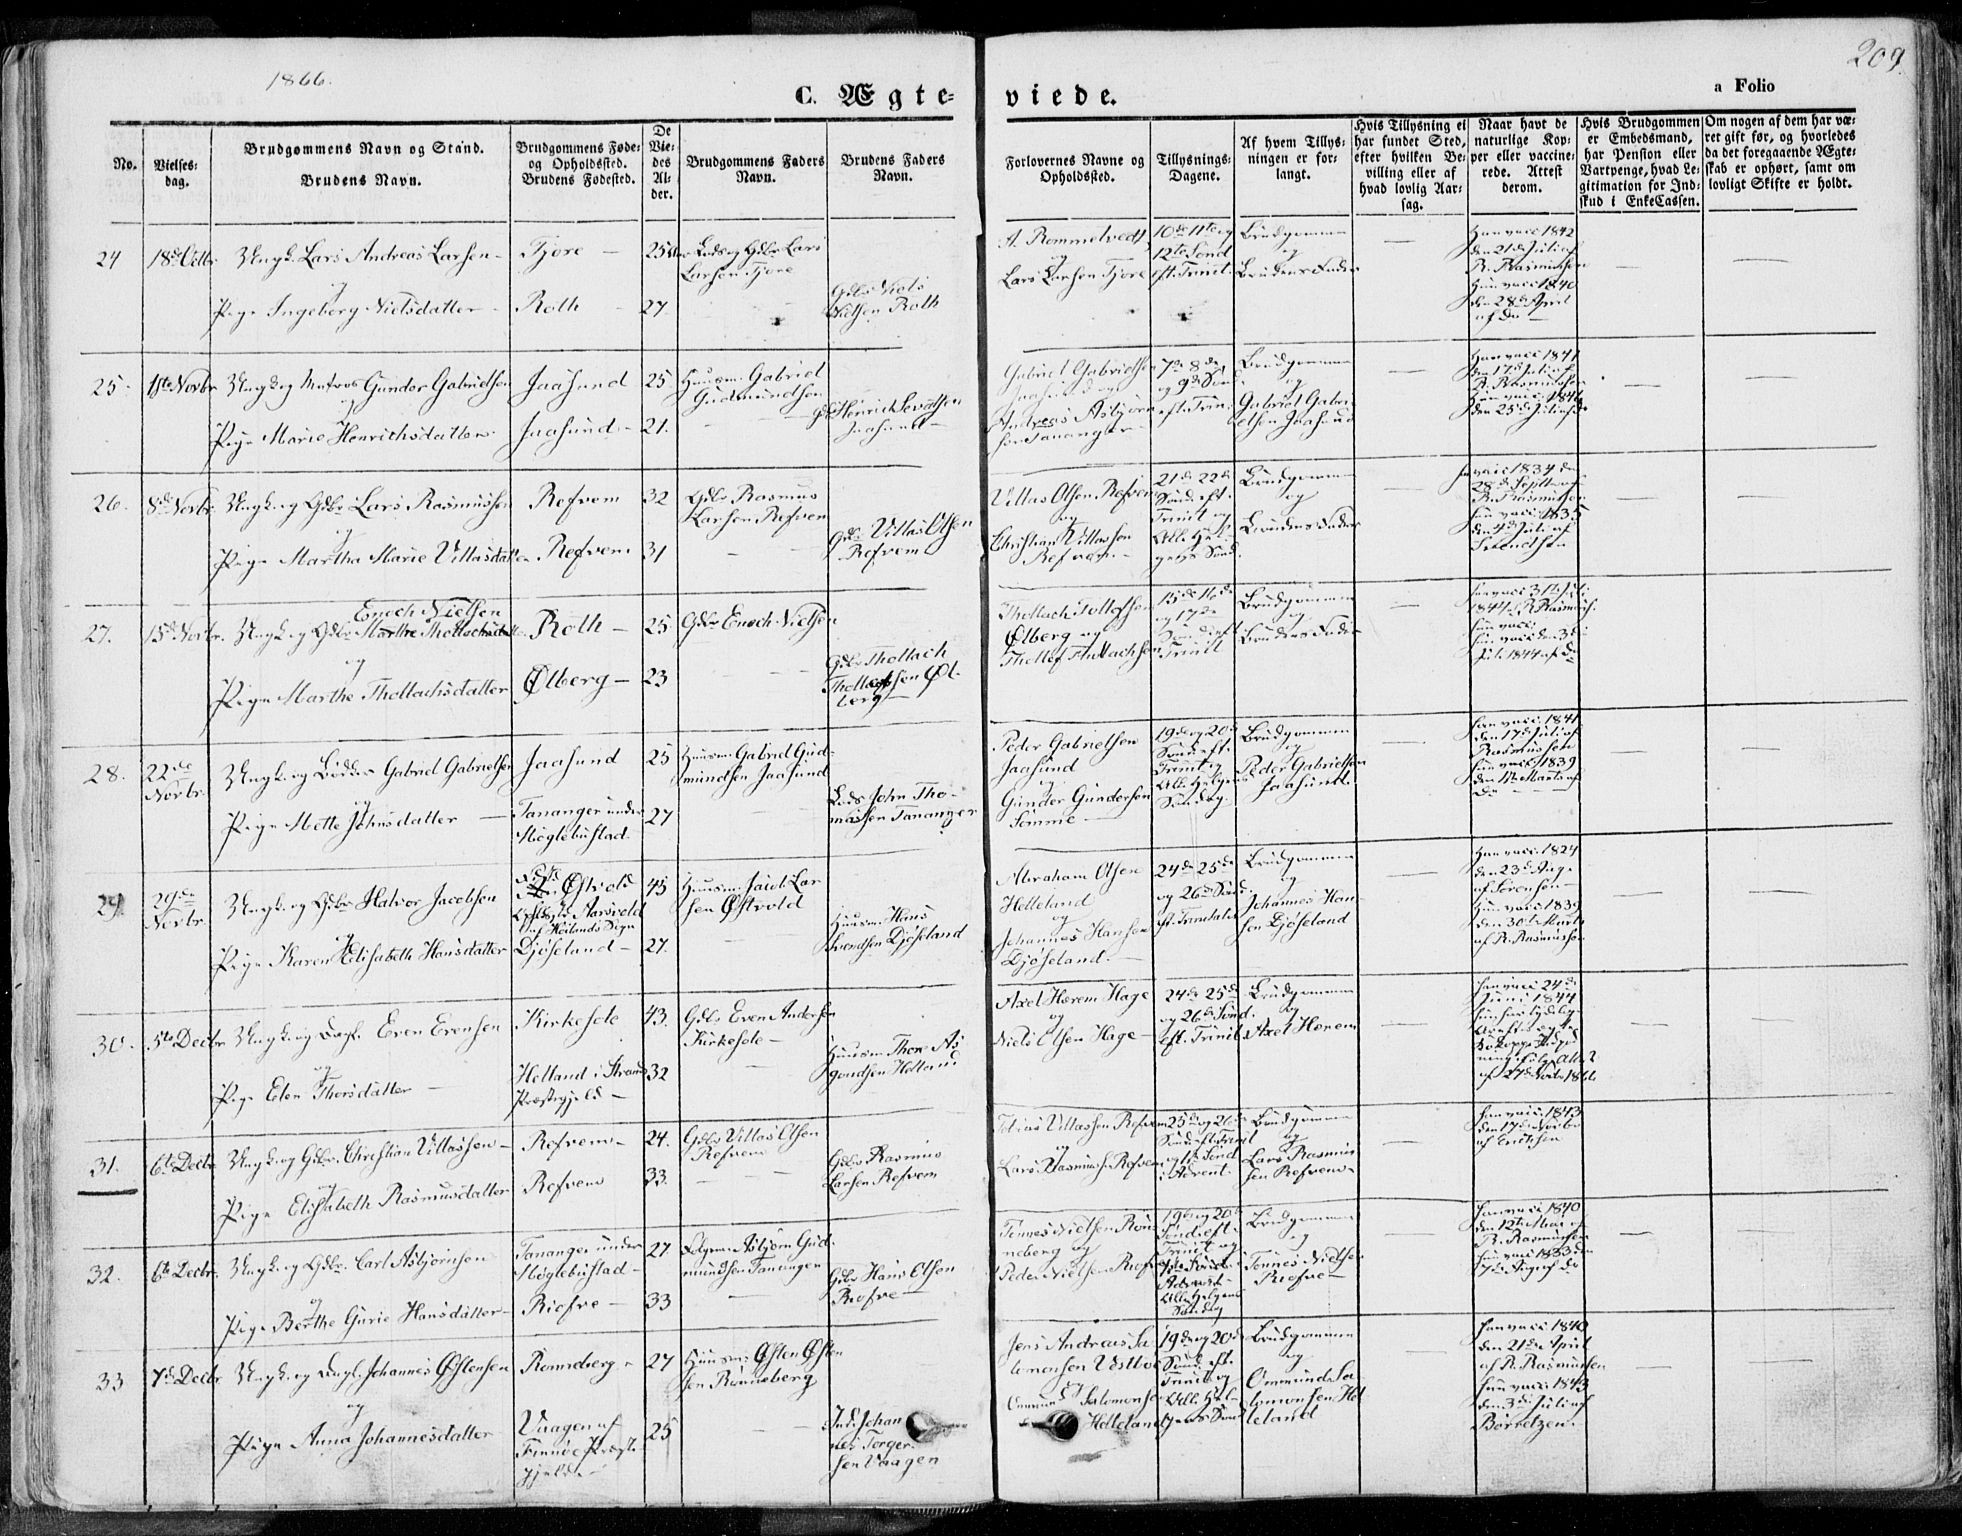 1866.
209.
C. Ægte-
viede.
a Folio
No.
Vielses-
dag.
Brudgommens Navn og Stand.
Brudens Navn.
Brudgommens Føde-
og Opholdssted.
Brudens Fødested.
De
Vie-
des
Al-
der.
Brudgommens Faders
Navn.
Brudens Faders
Navn.
Forlovernes Navne og
Opholdssted.
Tillysnings-
Dagene.
Af hvem Tillys-
ningen er for-
langt.
Hvis Tillysning ei
har fundet Sted,
efter hvilken Be-
villing eller af
hvad lovlig Aar-
sag.
Naar havt de
naturlige Kop-
per eller vaccine-
rede. Attest
derom.
Hvis Brudgommen
er Embedsmand,
har Pension eller
Vartpenge, hvad Le-
gitimation for Ind-
skud i EnkeCassen.
Om nogen af dem har væ-
ret gift før, og hvorledes
da det foregaaende Ægte-
skab er ophørt, samt om
lovligt Skifte er holdt.
24
18de Octbr
Ungk. Lars Andreas Larsen
og
Pige Ingeborg Nielsdatter
Tjore
Roth
25
27
Lods og Gdbr Lars
Larsen Tjore
Gdbr Niels
Nielsen Roth
A. Rommetvedt
og
Lars Larsen Tjore
10de 11te og
12te Sønd
eft. Trinit.
Brudgommen
og
Brudens Fader
Han vacc 1842
den 21de Juli af
R. Rasmussen
Hun vacc 1840
den 28de April
af do
25.
1ste Novbr
Ungk og Matros Gunder Gabrielsen
og
Pige Marie Henrichsdatter
Jaasund
Jaasund
25
21.
Huusm. Gabriel
Gudmundsen
Henrich Sevatsen
Jaasund
Gabriel Gabrielsen
Jaasund og
Andreas Asbjørn-
sen Tananger
7de 8de
og 9de Sønd
eft. Trin.
Brudgommen
og
Gabriel Gabri-
elsen Jaasund
Han vacc 1841
den 17de Juli af
R. Rasmussen
Hun vacc 1846
den 25de Juli af do
26.
8de Novbr
Ungk. og Gdbr Lars Rasmussen
og
Pige Martha Marie Villasdatter
Refvem
Refvem
32
31
Gdbr Rasmus
Larsen Refvem
Gdbr Villas Olsen
Refvem
Villas Olsen Refvem
og
Christian Villassen
Refvem
21de 22de
Sønd. eft.
Trinit og
Alle Hel-
gens Sønd.
Brudgommen
og
Brudens Fader
Han vacc 1834 den
28de Septbr af
R. Rasmussen
Hun vacc 1835
den 4de Juli af
Svendsen
27.
15de Novbr.
Enoch Nielsen
Ungk og Gdbr Marthe Thollachsdatter
og
Pige Marthe Thollachsdatter
Roth
Ølberg
25
23
Gdbr Enoch Nielsen
Gdbr Thollach
Thollefsen Øl-
berg
Thollach Tollefsen
Ølberg og
Thollef Thollachsen
15de 16de
og 17de
Sønd. eft.
Trinit
Brudgommen
og
Brudens Fader
Han vacc 31te Juli
1844 af R Rasmuss.
Hun vacc
Hun vacc den 3die
Juli 1844 af do
28.
22de
Novbr.
Ungk. og Bødker Gabriel Gabrielsen
og
Pige Mette Johnsdatter
Jaasund
Tananger under
Møglebustad
25
27
Huusm Gabriel Gud-
mundsen Jaasund
Lods John Tho-
massen Tananger
Peder Gabrielsen
Jaasund
og
Gunder Gundersen
Sømme
19de og 20de
Sønd. eft.
Trinit og
Alle Helgens
Søndag.
Brudgommen
og
Peder Gabrielsen
Jaasund.
Han vacc. 1841
den 17de Juli af
Rasmussen
Hun vacc 1839
den 11te Marts af
do
29.
29de
Novbr.
Ungk. og Gdbr Halvor Jacobsen
og
Pige Karen Elisabeth Hansdatter
Østvold
Aarsvold
af Høilands Sogn
Djøseland
45
27.
Huusm. Jacob Lar-
sen Østvold
Huusm. Hans
Svendsen Djøseland
Abraham Olsen
Helleland
og
Johannes Hansen
Djøseland.
24de 25de
og 26de Sønd.
eft. Trinitatis
Brudgommen
og
Johannes Han-
sen Djøseland
Han vacc. 1824
den 23de Aug.
af Sørensen
Hun vacc. 1839
den 30te Marts
af R. Rasmussen
30.
5te Decbr
Ungk. og Dagl. Even Evensen
og
Pige Elen Thorsdatter
Kirkesole
Helland i Strand
Præstegjeld
43.
32
Gdbr Even Andersen
Kirkesole
Huusm Thore As-
gaudsen Helland
Axel Hærem Hage
og
Niels Olsen Hage
24de 25de
og 26de Sønd.
eft. Trinit
Brudgommen
og
Axel Hærem
Han vacc 24de
Juni 1844
Hun har tydelige
af 27de Novbr 1866.
31.
6te Decbr
Ungk. og Gdbr. Christian Villassen
og
Pige Elisabeth Rasmusdatter
Refvem
Refvem
24.
33.
Gdbr Villas Olsen
Refvem
Gdbr Rasmus
Larsen Refvem
Tobias Villassen Refvem
og
Lars Rasmuss. Refvem
25de og 26de
Sønd. eft. Trinit
og 1ste Sønd
i Advent.
Brudgommen
og
Lars Rasmus-
sen Refvem
Han vacc. 1843
den 17de Novbr
af Erichsen
32.
6te Decbr.
Ungk. og Gdbr. Carl Asbjørnsen
og
Pige Berthe Gurie Hansdatter
Tananger under
Møglebustad
Riofre
27
33
Asbjørn Gud-
mundsen Tananger
Gdbr Hans Olsen
Riofre
Tønnes Nielsen Røn-
neberg og
Peder Nielsen Riofre
19de og 20de
Sønd. eft.
Trinit og
1ste Sønd. i
Advent
Alle Helgens
Søndag
Brudgommen
og
Tønnes Nielsen
Riofre
Han vacc 1840
den 12te Mai af
R. Rasmussen
Hun vacc 1833 den
7de Aug af do
33
7de Decbr
Ungk. og Dagl. Johannes Østensen
og
Pige Anna Johannesdatter
Rønneberg
Vaagen af
Finnøe Præste-
gjeld
27
25
Huusm. Østen Østen-
sen Rønneberg
Johan-
nes Torger-
sen Vaagen
Jens Andreas Sa-
lomonsen Vistbo
og
Ommund Salomonsen
Helleland
19de og 20de
Sønd. eft.
Trinit og
Alle Hel-
gens Sønd
Brudgommen
og
Ommund Sa-
lomonsen Hel-
leland
Han vacc 1840
den 21de April
af R. Rasmussen
Hun vacc 1843
den 3die Juli af
Børretzen.